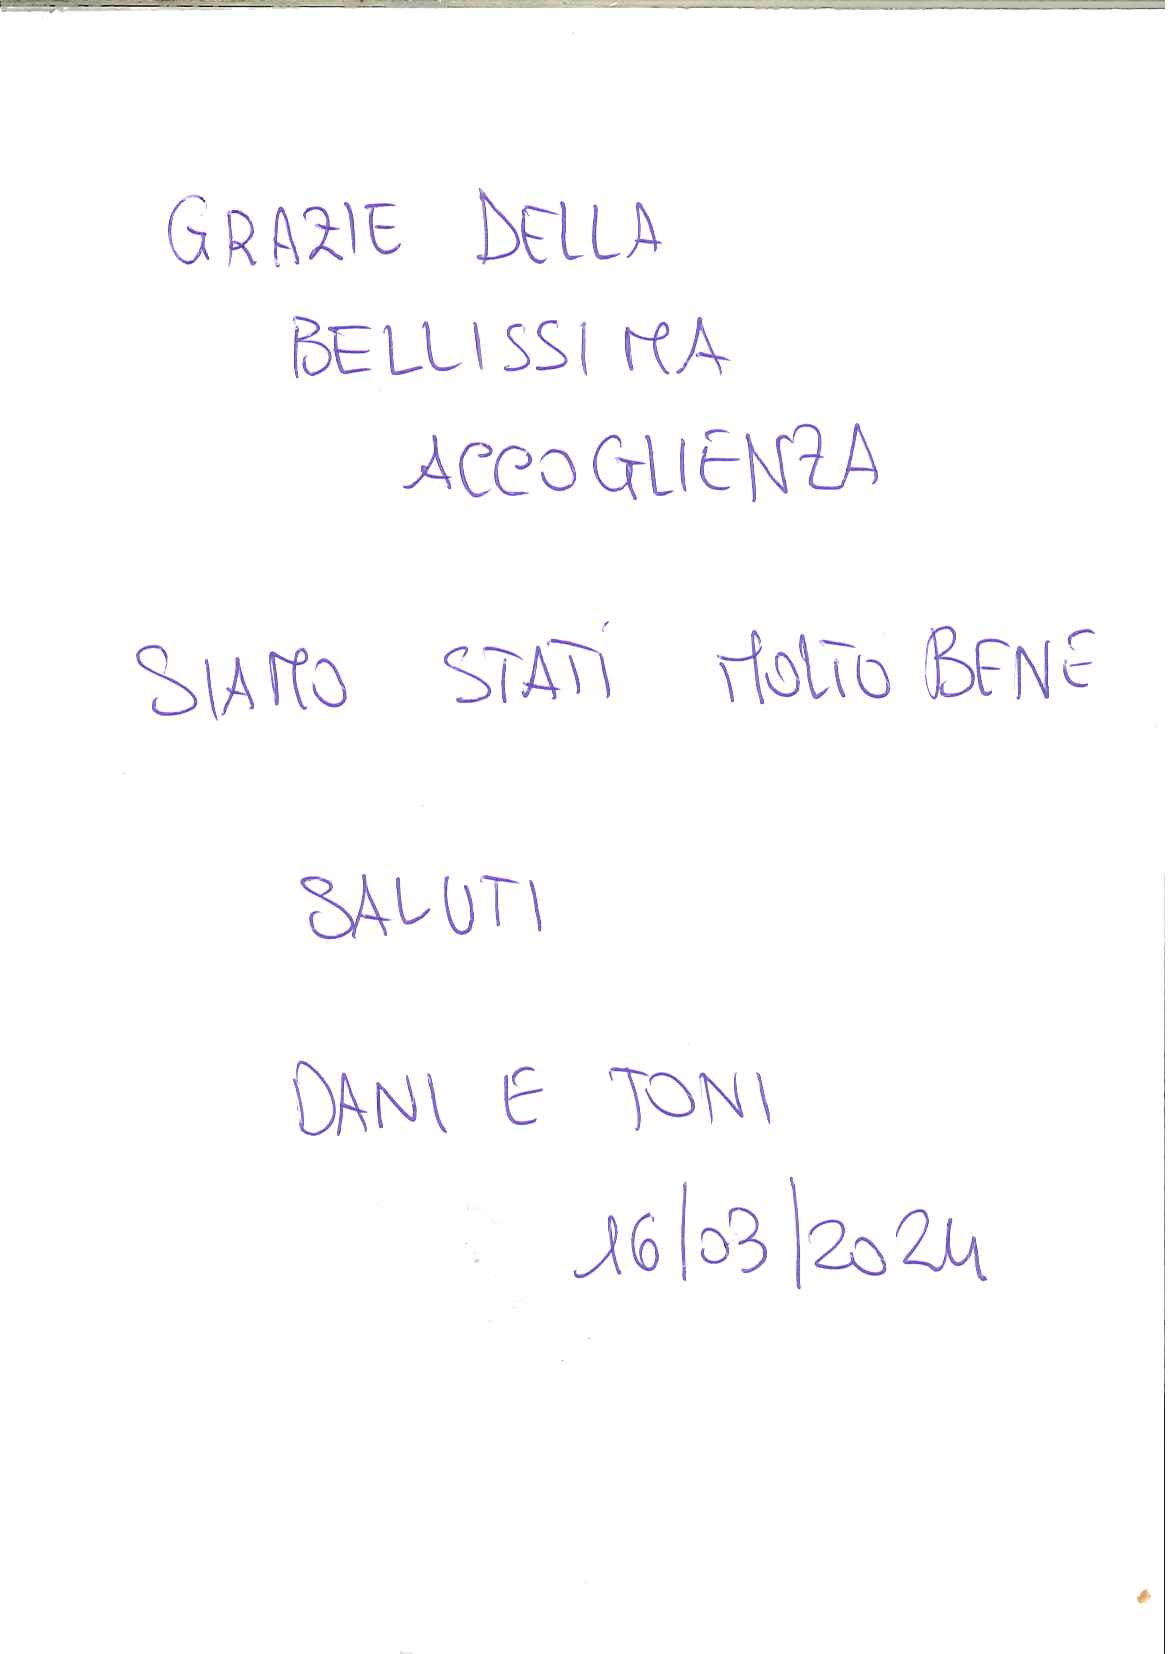 GRAZIE DELLA
BELLISSIMA
ACCOGLIENZA
SIAMO STATI MOLTO BENE
SALUTI
DANI E TONI
16/03/2024